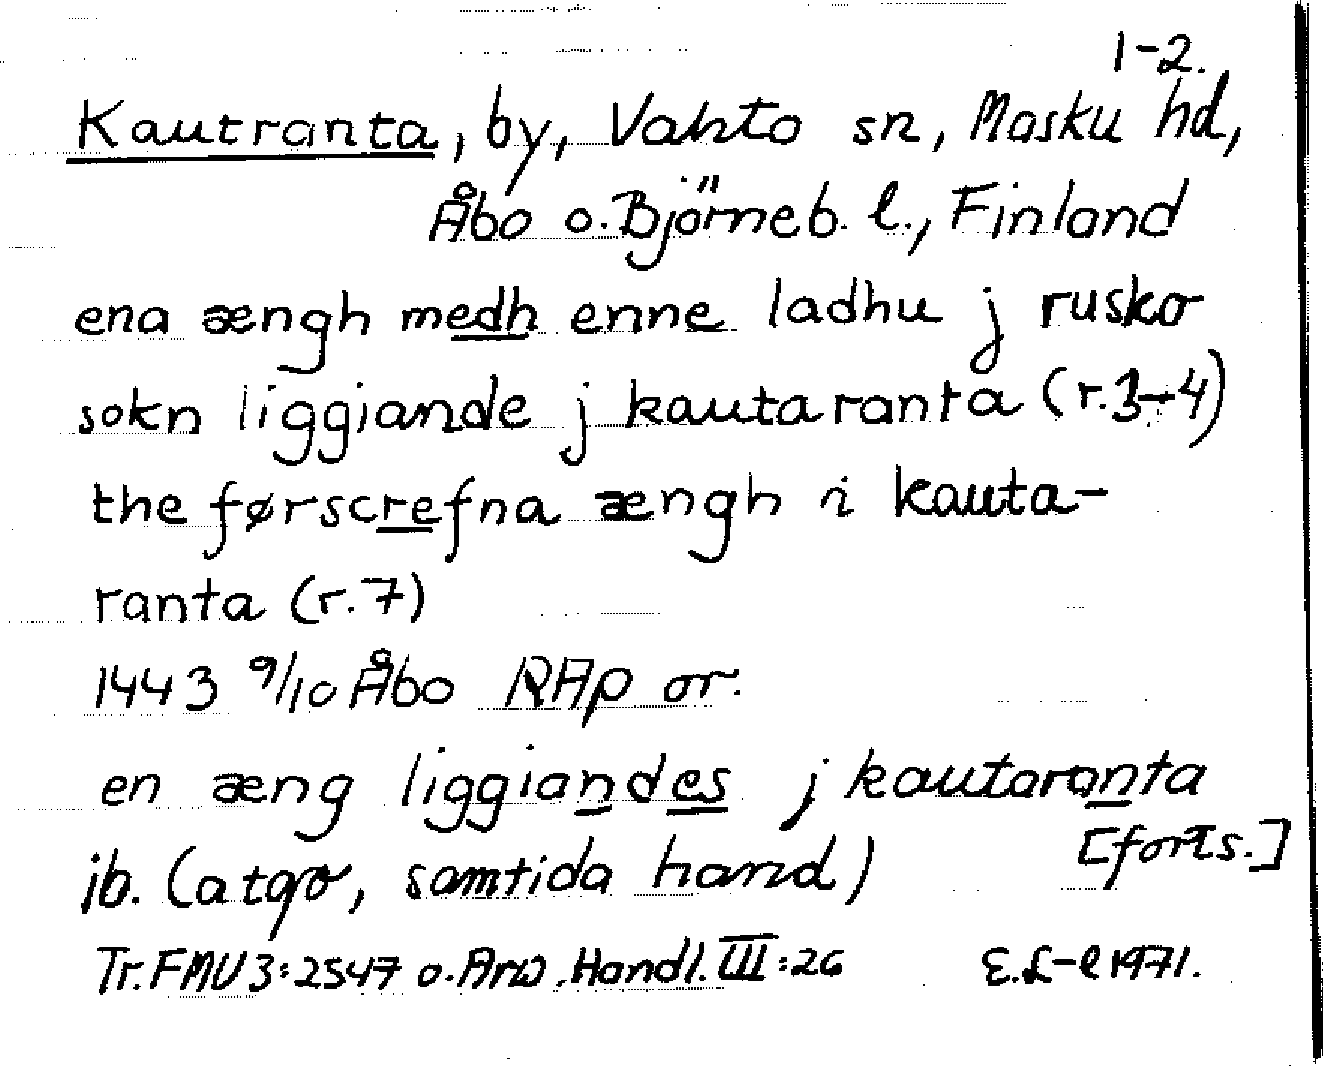 1-2.
Kautranta, by, Vahto sn, Masku hd,
Åbo o. Björneb. l., Finland
ena ængh medh enne ladhu j rusko
sokn liggiande j kautaranta (r. 3-4)
the førscrefna ængh i kauta-
ranta (r. 7)
1443 9/10 Åbo RAp or.
en æng liggiandes j kautaranta
ib. (atgo, samtida hand) [forts.]
Tr. FMU 3:2547 o. Arw. Handl. III:26 E.L-l 1971.